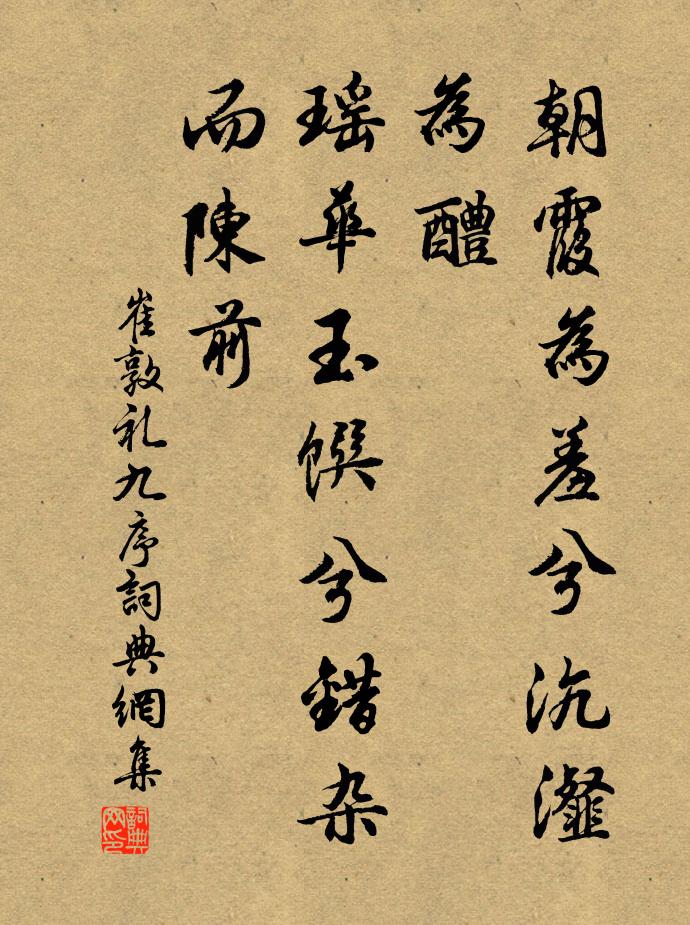 朝霞為羞兮沆瀣
為醴
瑶華玉馔兮錯杂
而陳前
崔敦礼九序詞典網集
詞典网印